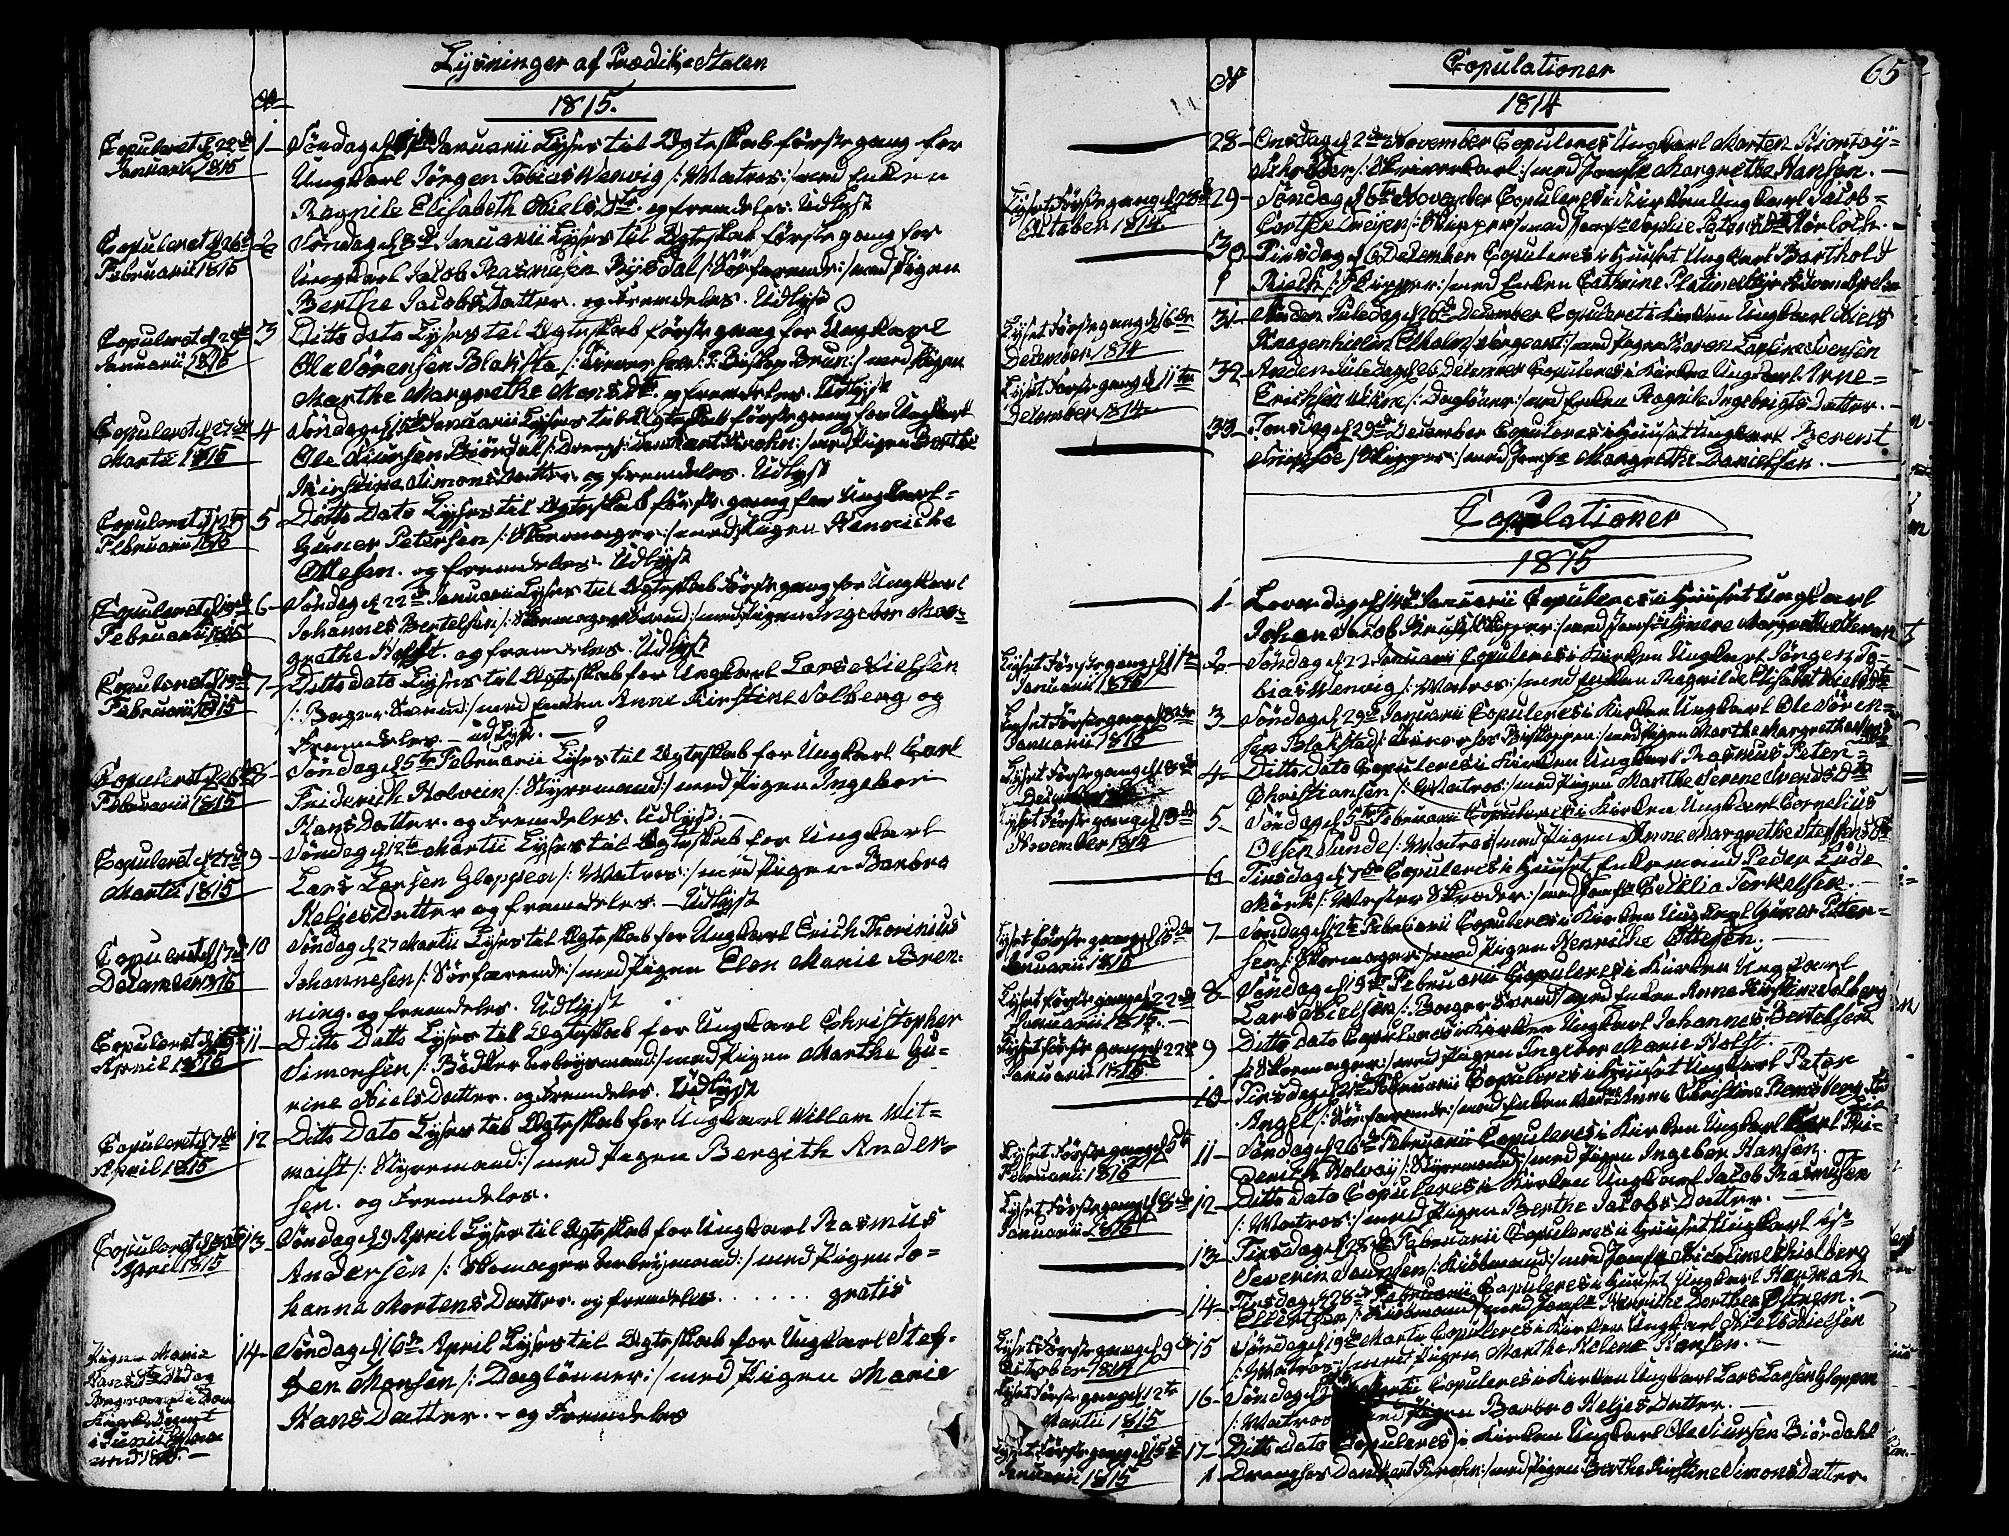 Lysninger af Prædikestolen
1815.
Copuleret d 22de
Januarii 1815
1 - Søndag d 1ste Januarii Lyses til Ægteskab første gang for
Ungkarl Jørgen Tobias Wenvig /: Matros :/ med Enken
Ragnile Elisabeth Niels Dtr. og fremdeles. Udlyst
Copuleret d 26de
Februarii 1815
2 Søndag d 8de Januarii Lyses til Ægteskab første gang for
Ungkarl Jacob Rasmusen /: Søefarende :/ med Pigen
Berthe Jacobs Datter. og Fremdeles. Udlyst
Copuleret d 29de
Januarii 1815
3 Ditto dato Lyses til Ægteskab første gang for Ungkarl
Ole Sørensen Blaksta /: Biskop Brun :/ med Pigen
Marthe Margrethe Mons Dtr. og fremdeles. Udlyst
Copuleret d 27de
Martii 1815
4 Søndag d 15de Januarii Lyses til Ægteskab første gang for Ungkarl
Ole Siursen Biørdal /: Dreng Danckert Krohn :/ med Pigen Berthe
Kirstine Simons Datter. og fremdeles. Udlyst
Copuleret d 12te
Februarii 1815
5 Ditto Dato Lyses til Ægteskab første gang for Ungkarl
Guner Petersen /: Skoemager :/ med Pigen Henriche
Ottesen. og fremdeles. Udlyst
Copuleret d 19de
Februarii 1815
6 - Søndag d 22de Januarii Lyses til Ægteskab Første gang for Ungkarl
Johannes Bertelsen /: Skoemager Svend :/ med Pigen Ingebor Mar-
grethe Holst. og fremdeles. Udlyst
Copuleret d 19de
Februarii 1815
7 - Ditto dato Lyses til Ægteskab for Ungkarl Lars Nielsen
/: Bager Svend :/ med Enken Anne Kirstine Solberg og
Fremdeles. - udlyst. -
Copuleret d 26de
Februarii 1815
8 - Søndag d 5te Februarii Lyses til Ægteskab for Ungkarl Carl
Friderich Holvein /: Styremand :/ med Pigen Ingebor
Hans Datter. og Fremdeles. Udlyst. -
Copuleret d 27de
Martii 1815
9 - Søndag d 12te Martii Lyses til Ægteskab for Ungkarl
Lars Larsen Gloppen /: Matros :/ med Pigen Barbro
Heljes Datter og fremdeles. - Udlyst
Copuleret d 17de
December 1815
10 Søndag d 27 Martii Lyses til Ægteskab for Ungkarl Erich Thorinius
Johannesen /: Søefarende :/ med Pigen Elen Marie Bren-
ning. og fremdeles. Udlyst
April 1815
11 - Ditto Datto Lyses til Ægteskab for Ungkarl Christopher
Simonsen /: Bødker arbeysmand :/ med Pigen Marthe Gu-
rine Niels Datter. og Fremdeles. Udlyst
Copuleret d 17de
April 1815
12 - Ditto Dato Lyses til Ægteskab for Ungkarl Willam Wit-
/: Styremand :/ med Pigen Bergith Ander-
sen. og Fremdeles.
April 1815
13 - Søndag d 9 April Lyses til Ægteskab for Ungkarl Rasmus
Andersen /: Skomager arbeysmand :/ med Pigen Jo-
hanna Mortens Datter. og fremdeles . . . . . . gratis
Pigen Marie
14 - Søndag d 16de April Lyses til Ægteskab for Ungkarl Stef-
fen Monsen /: Dagløner :/ med Pigen Marie
Hans Datter. - og Fremdeles
65
Copulationer
1814
28 - Onsdag d 2den November Copuleres Ungkarl Morten
Schrøder /: :/ med Jomfr Margrethe Hansen. -
Lyset første gang
Octaber 1814.
29 - Søndag d 6te November Copuleres i Kirken Ungkarl Jacob
/: Skipper :/ med Jomfr Sophie
30 Tirsdag d 6 December Copuleres i Huuset Ungkarl Barthold
/: Skipper :/ med Enken Cathrine
Lyset Første gang d
December 1814
31 - Anden Juledag d 26de December Copuleret i Kirken Ungkarl Niels
/: Sergeant :/ med Pigen Karen Svensen
Lyset Første gang d 11te
December 1814.
32 - Anden Juledag December Copuleres i Kirken Ungkarl Arne
Erichsen /: Dagløner :/ med Enken Ragnile Ingebrigts Datter. -
33 - Torsdag d 29de December Copuleres i Huuset Ungkarl Berent
/: Skipper :/ med Jomfr Margrethe Danielsen. -
Copulationer
1815
1 - Løverdag d 14de Januarii Copuleres i Huuset Ungkarl
Johan Jacob /: Skipper :/ med Jomfr
Lyset Første gang d 1ste
Januarii 1815
2 - Søndag d 22 Januarii Copuleres i Kirken Ungkarl Jørgen To-
bias Wenvig /: Matros :/ med Enken Ragnilde Elisabet Niels Dtr
Lyset Første gang d 8de
Januarii 1815
3 - Søndag d 29de Januarii Copuleres i Kirken Ungkarl Ole Sören-
sen Blakstad /: hos Biskoppen :/ med Pigen Marthe Margrethe Mons Dtr
Lyset Første gang d 18de
4 - Ditto Dato Copuleres i Kirken Ungkarl Rasmus Peter
Christiansen /: Matros :/ med Pigen Marthe Serene Svends Dtr
Lyset Første gang d 13de
November 1814
5 - Søndag d 5te Februarii Copuleres i Kirken Ungkarl Cornelius
Olsen Sunde /: Matros :/ med Pigen Anne Margrethe Steffens Dtr
6 Tirsdag d 7de Copuleres i Huuset Enkemand Peder Lude
Mørk /: Mester Skræder :/ med Jomfr Cecilia Terkelsen. -
Lyset første gang d 15de
Januarii 1815
7 - Søndag d 12te Februarii Copuleres i Kirken Ungkarl Guner Peter-
sen /: Skoemager :/ med Pigen Henrikke Ottesen. -
Lyset første gang d 22de
Januarii 1815. -
8 - Søndag d 19de Februarii Copuleres i Kirken Ungkarl
Lars Nielsen /: Bager Svend :/ med Enken Anne Kirstine Solberg
Lyset første gang d 22de
Januarii 1815
9 Ditto Dato Copuleres i Kirken Ungkarl Johannes Bertelsen
/: Skoemager :/ med Pigen Ingebor Marie Holst. -
10 - Tirsdag d 21de Februarii Copuleres i Huuset Ungkarl Peter
Angel /: Søefarende :/ med Enken Anne Christine
Lyset Første gang d 5te
Februarii 1815
11 - Søndag d 26de Februarii Copuleres i Kirken Ungkarl Karl Fri-
derich Holvay /: Styremand :/ med Pigen Ingebor Hansen.
Lyset Første gang d 8de
Januarii 1815
12 - Ditto dato Copuleres i Kirken Ungkarl Jacob Rasmusen
/: Matros :/ med Pigen Berthe Jacobs Datter. -
13 - Tirsdag d 28de Februarii Copuleres i Huuset Ungkarl
Severin /: Kiøbmand :/ med Jomfr Nicoline
14 - Tirsdag d 28de Februarii Copuleres i Huuset Ungkarl Herman
Ellertsen /: Kiøbmand :/ med Jomfr Henrikke Dorthea
October 1814
15 Søndag d 19de Martii Copuleres i Kirken Ungkarl Niels Nielsen
/: Matros :/ med Pigen Marthe Helene Hansen. -
Lyset Første gang d 12te
Martii 1815
16 - Søndag Martii Copuleres i Kirken Ungkarl Lars Larsen Gloppen
/: Matros :/ med Pigen Barbro Heljes Datter. -
Lyset Første gang d 15de
Januarii 1815
17 - Ditto dato Copuleres i Kirken Ungkarl Ole Siursen Biördahl
Dreng hos Danckert Krohn :/ med Pigen Berthe Kirstine Simons Datter.